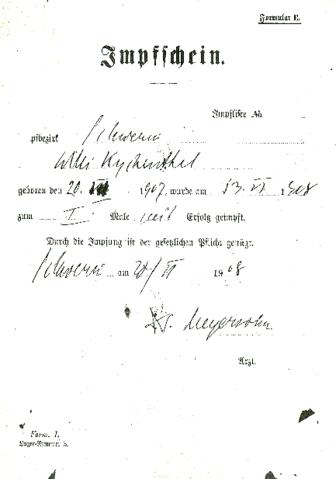 Formular E.
Impfschein.
Impfliste №
pfbezirk Schwerin
Willi Kychenthal
geboren den 20. 1907, wurde am 13. VI 1908
zum I. Male mit Erfolg geimpft.
Durch die Impfung ist der gesetzlichen Pflicht genügt.
Schwerin am 20/VI 1908
Dr. Meyersohn
Arzt.
Form. I.